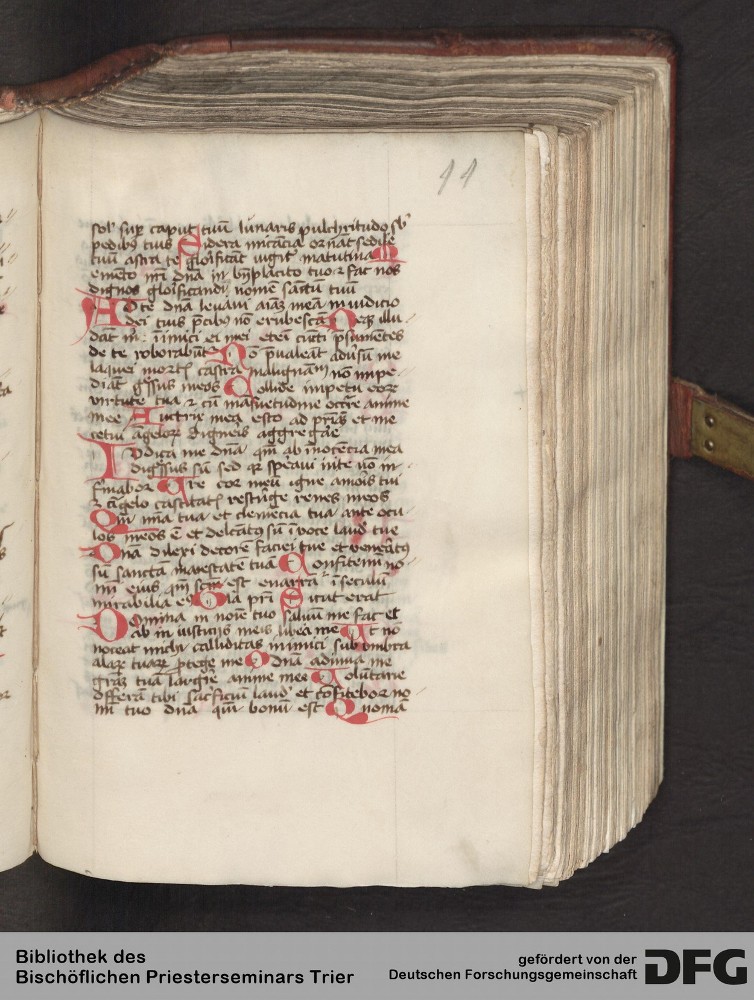 11
sol sup caput tuū lunaris pulchritudo sb
pedibꝰ tuis Sidera micācia ornāt sedile
tuū astra te gloīficāt iugit matutina
emēto nr̄i dn̄a in bn̄placito tuo ⁊ fac nos
dignos gloīficandi nomē sanctū tuū
Ad te dn̄a levavi aīaȝ meā in iudicio
dei tuis p̄cibꝰ nō erubescā Neqȝ illu
dāt m̄ inimici ei mei etei cūcti p̄sumētes
de te roborabūt Nō p̄valeāt adūsū me
laquei mortis castra malignātiū nō impe
diāt gssus meos Collide impetū eorȝ
virtute tua ⁊ cū māsuetudine occ̄re anime
mee Auctrix mea esto ad pr̄iā et me
cetui āgeloꝝ digneis aggregāe
Iudica me dn̄a qm̄ ab īnocētia mea
digssus sū sed qꝛ speāvi in te nō in
firmabor Ure cor meū igne amois tui
⁊ cīgelo castitatis restrīge renes meos
Qm̄ mīa tua et clemēcia tua ante ocu
los meos ē et delcātꝰ sū ī voce laudis tue
Dn̄a dilexi decorē faciei tue et venēatꝰ
sū sanctā maiestatē tuā Confitemi no
mi eius qm̄ scm̄ est enarra ī seculū
mirabilia eꝰ Glā pr̄i Sicut erat
Domina in noīe tuo salvū me fac et
ab in iusticijs meis libeā me Ut nō
noceat michi calliditas inimici sub umbra
alaꝝ tuaꝝ p̄tege me O dn̄a adiuva me
grāȝ tuā largire anime mee Volūtarie
offerā tibi sacficiū laudis et cōfitebor no
mi tuo dn̄a qm̄ bonū est Qnomā
Bibliothek des
Bischöflichen Priesterseminars Trier
gefördert von der
Deutschen Forschungsgemeinschaft
DFG